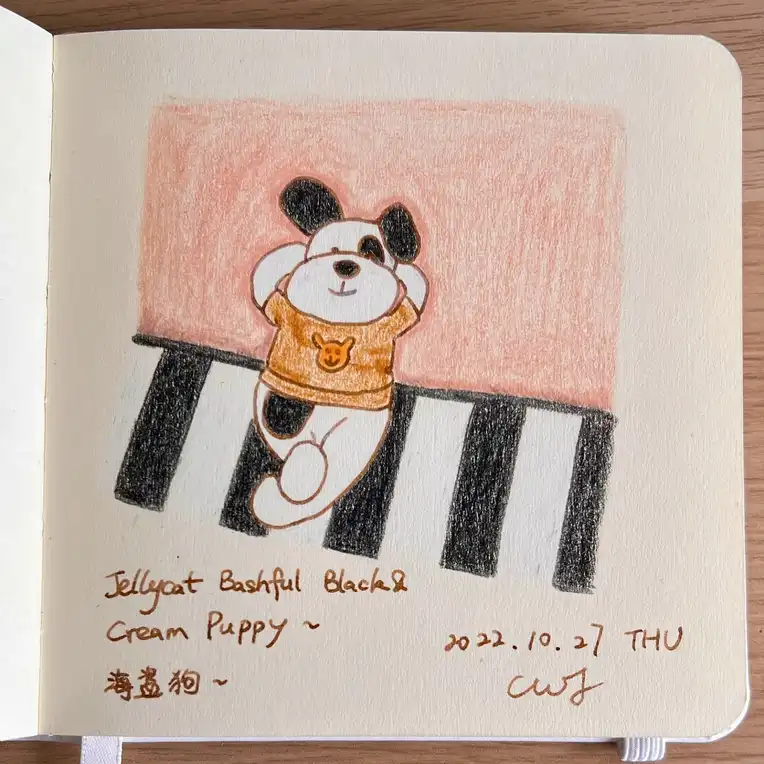 Jellycat Bashful Black&
Cream Puppy ~
2022.10.27 THU
海盗狗~
CWJ